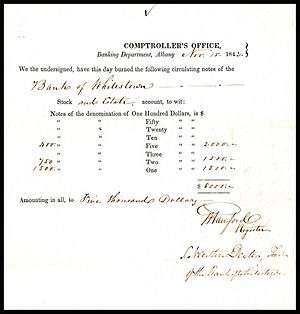 COMPTROLLER'S OFFICE,
Banking Department, Albany Nov. 184
We the undersigned, have this day burned the following circulating notes of the
Bank of Whitestown
Stock and Estate account, to wit:
Notes of the denomination of One Hundred Dollars, is $
" " Fifty " "
" " Twenty " "
" " Ten " "
400 " " Five " " 2000
" " Three " "
750 " " Two " " 1500
1500 " " One " " 1500
$ 5000
Amounting in all, to Five thousand Dollars
Register
of the Bank of Whitestown